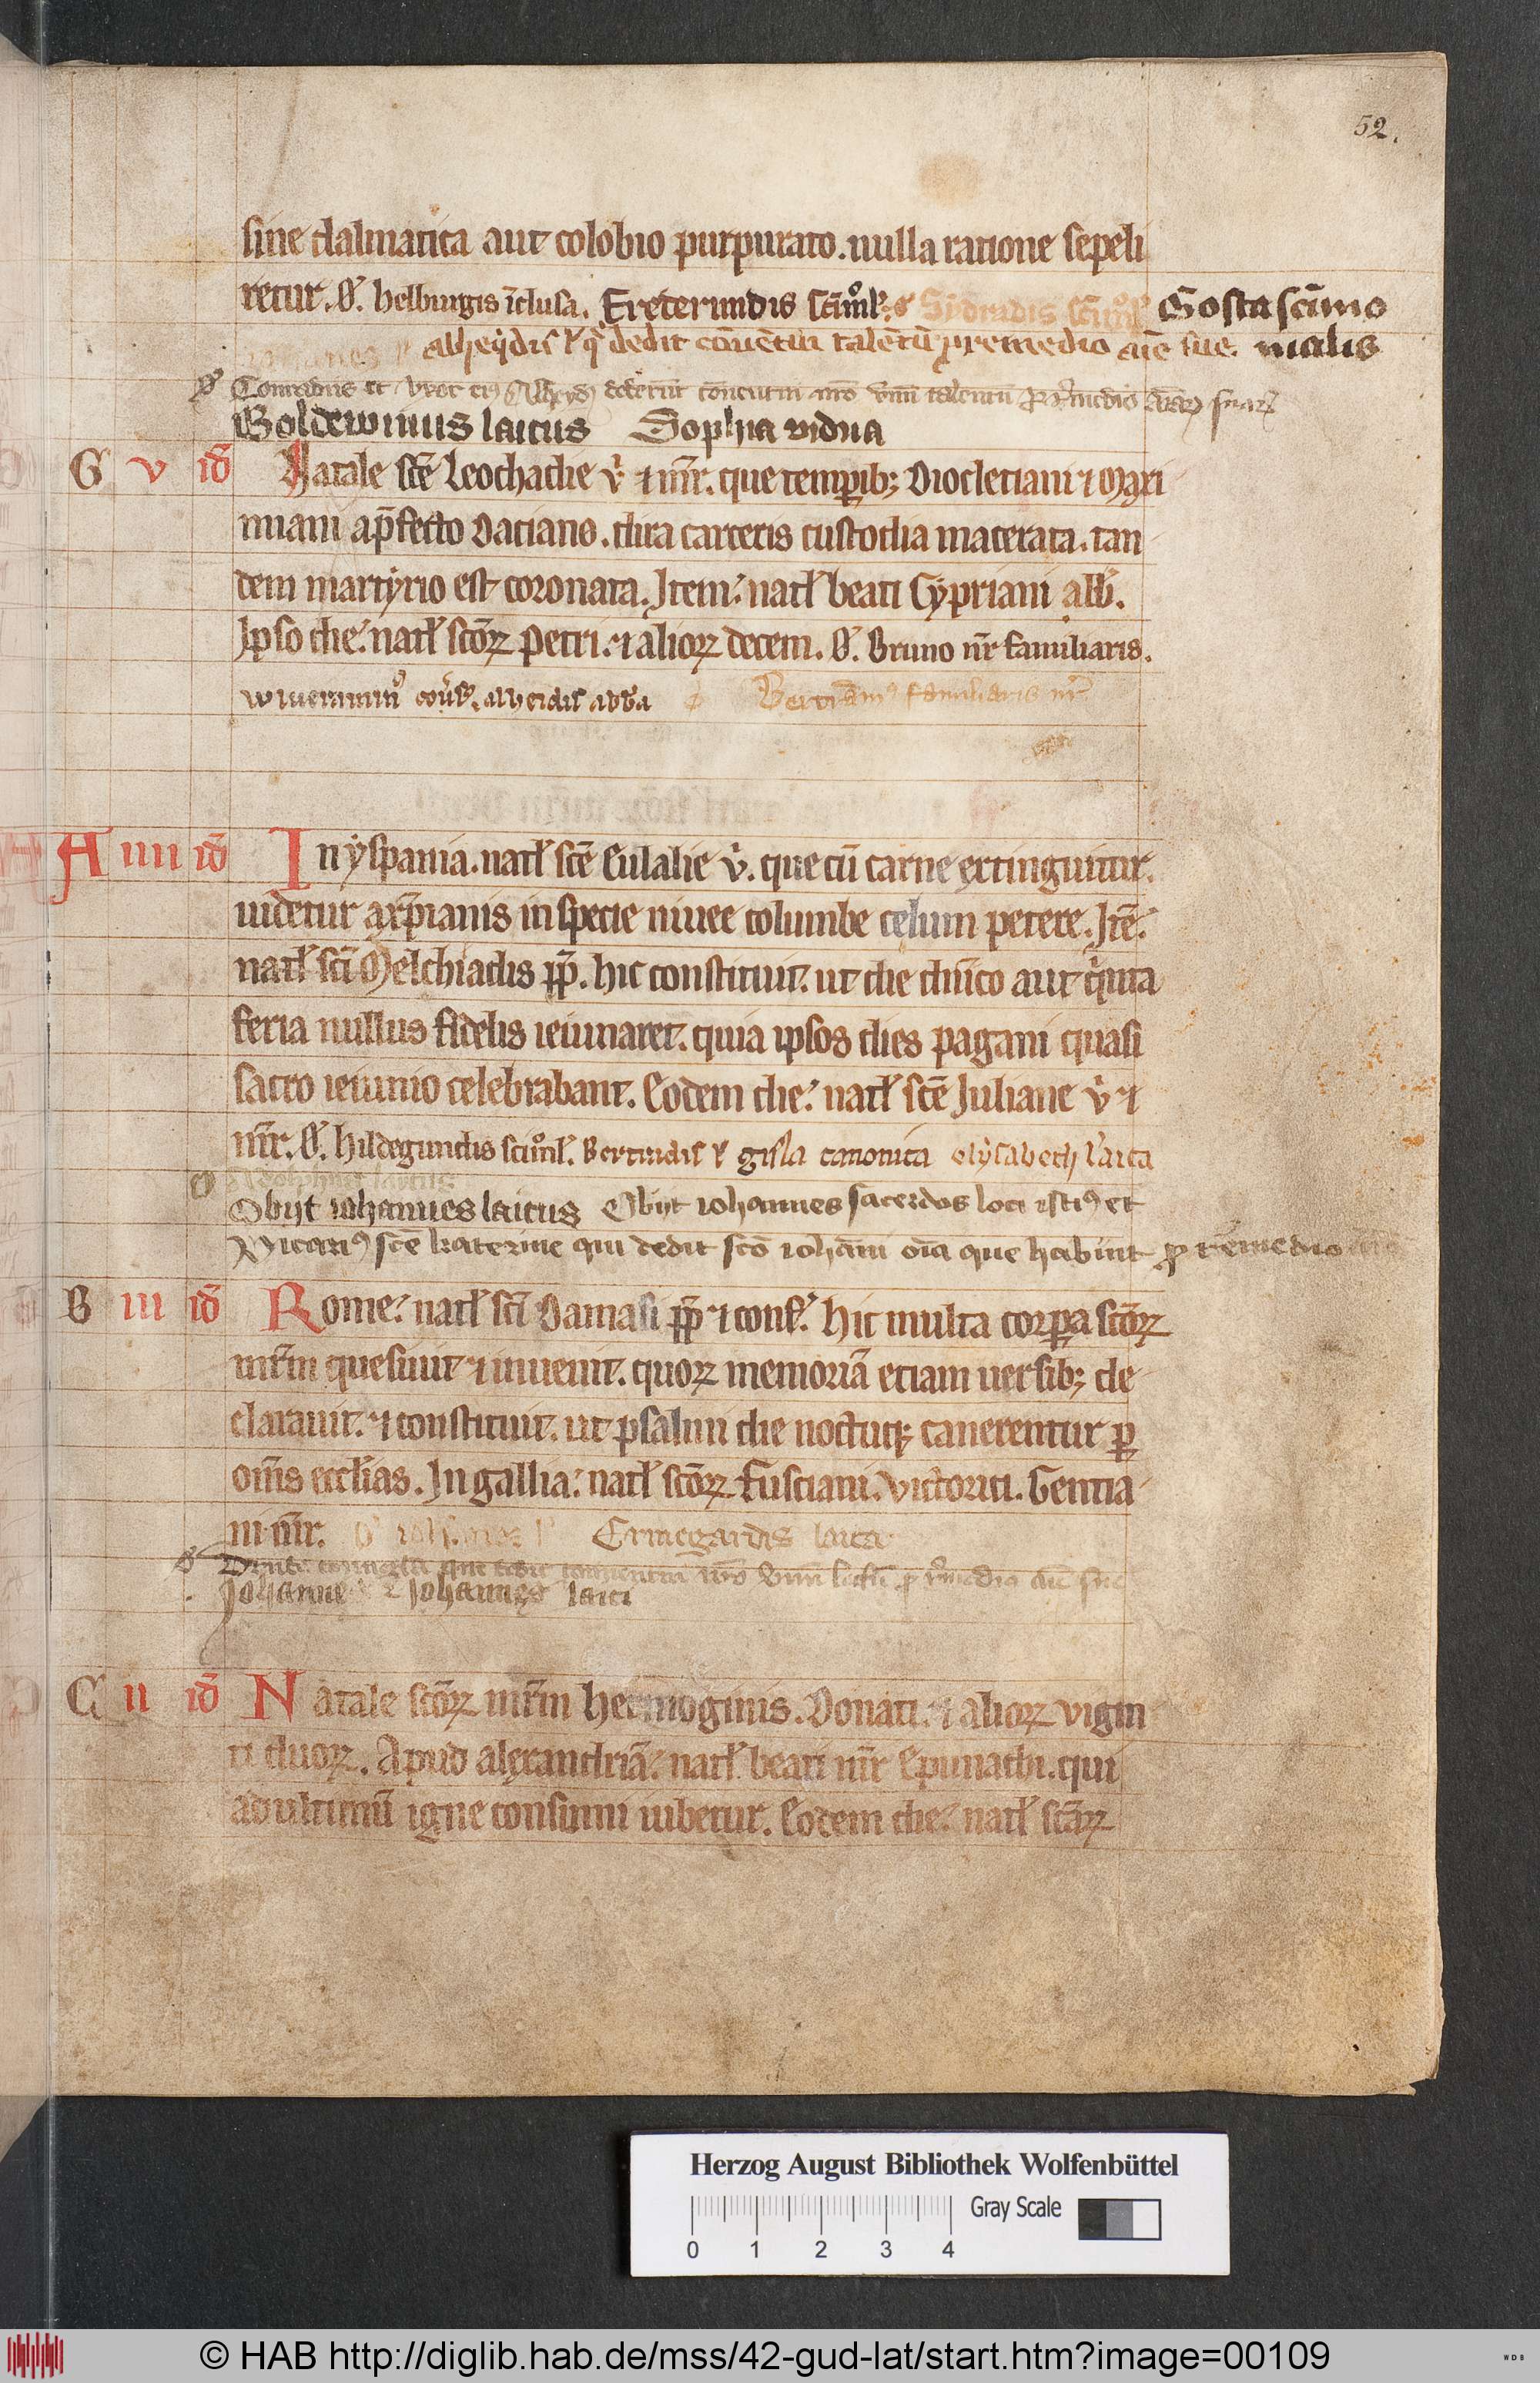 52.
sine dalmatica aut colobio purpurato. nulla ratione sepeli
retur. O᷎. helburgis īclusa. Frederundis sc̄imo͛l᷎. Gosta sc̄imo
alheẏdis l᷎ q̇ dedit cōuētui talētū ꝓ remedio aīe sue. nialis
Conradus et vxor eiꝰ dederūt conuentui nr̄o vnū talentū ꝓ
Boldewinus laicus Sophia vidua
G v id̄ Natale sc̄e Leochadie v̇ ⁊ mr̄. que temꝑib; Diocletiani ⁊ Maxi
miani a p̄fecto Daciano. dira carceris custodia macerata. tan
dem martẏrio est coronata. Item: natł beati Cypriani abb̄.
Ipso die: natł sc̄oꝝ Petri. ⁊ alioꝝ decem. O᷎. Bruno nr̄ familiaris.
alheidis abb̄a Bertramꝰ familiaris nr̄
A iiii id̄ In ẏspania. natł sc̄e Eulalie v̇. que cū carne extinguitur.
uidetur a xp̄ianis in specie niuee columbe celum petere. Itē:
natł sc̄i Melchiadis pp̄. hic constituit. ut die dn̄ico aut q̇nta
feria nullus fidelis ieiunaret. quia ipsos dies pagani quasi
sacro ieiunio celebrabant. Eodem die: natł sc̄e Juliane v̇ ⁊
mr̄. O᷎. hildegundis sc̄imo͛l᷎. Bertradis l᷎ gisla canonica elẏsabeth laica
Obijt iohannes laicus Obijt iohannes sacerdos loci istiꝰ et
Vicariꝰ sc̄e katerine qui dedit sc̄o ioh̄ani oīa que habuit ꝓ remedio
B iii id̄ Rome: natł sc̄i Damasi pp̄ ⁊ conf᷎. hic multa corꝑa sc̄oꝝ
mr̄m quesiuit ⁊ inuenit. quoꝝ memoriā etiam uersib; de
clarauit. ⁊ constituit. ut psalmi die noctuq; canerentur ꝑ
om̄s eccłias. In gallia: natł sc̄oꝝ Fusciani. Victorici. Gentia
ni mr̄. Ermegardis laica
Johannes ⁊ Johannes laici
C ii id̄ Natale sc̄oꝝ mr̄m hermoginis. Donati. ⁊ alioꝝ vigin
ti duoꝝ. Apud alexandriā: natł beati mr̄ Epimachi. qui
ad ultimū igne consumi iubetur. Eodem die: natł sc̄aꝝ
Herzog August Bibliothek Wolfenbüttel
Gray Scale
0 1 2 3 4
© HAB http://diglib.hab.de/mss/42-gud-lat/start.htm?image=00109
WDB